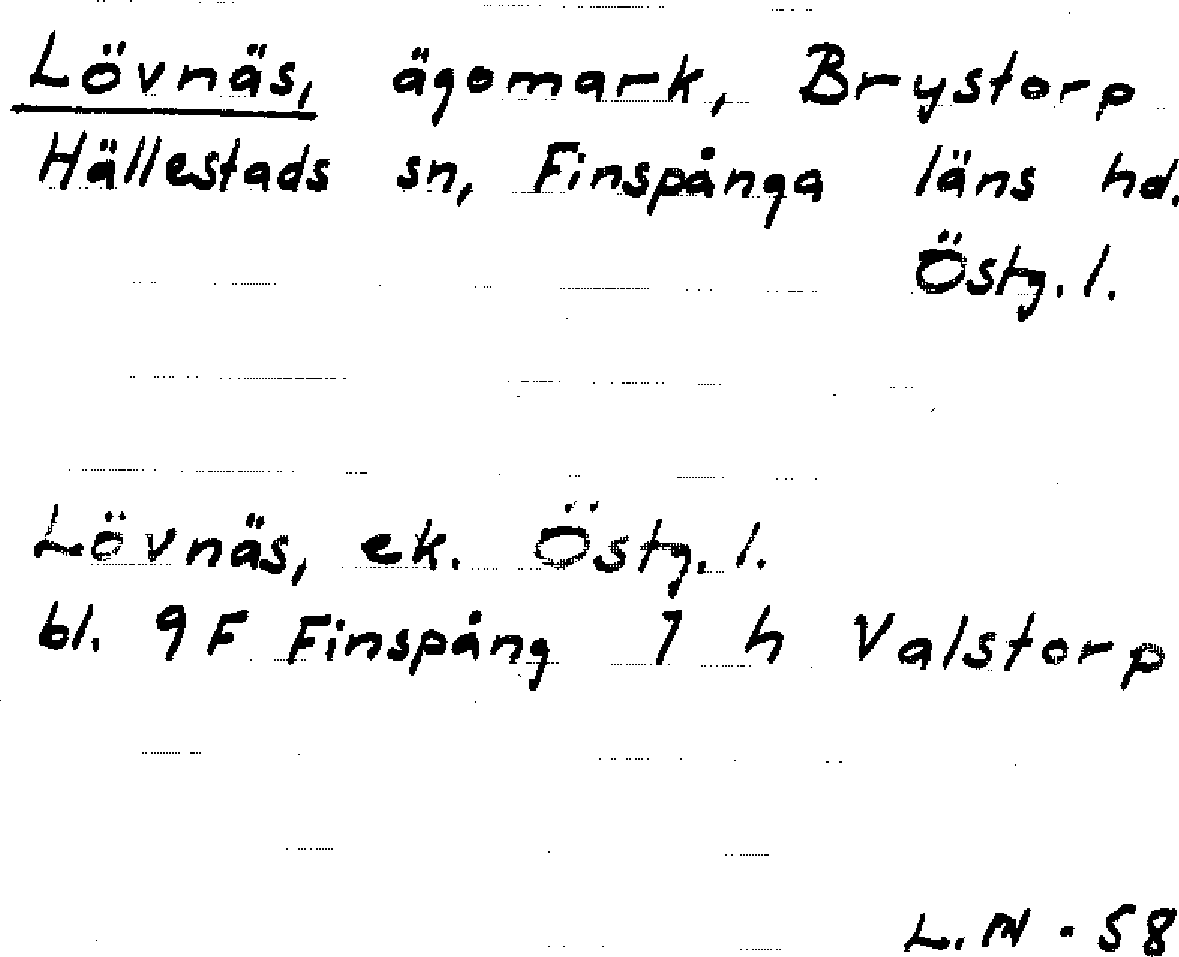 Lövnäs, ägomark, Brystorp
Hällestads sn, Finspånga läns hd.
Östg. l.
Lövnäs, ek. Östg. l.
bl. 9F Finspång 7 h Valstorp
L. N - 58